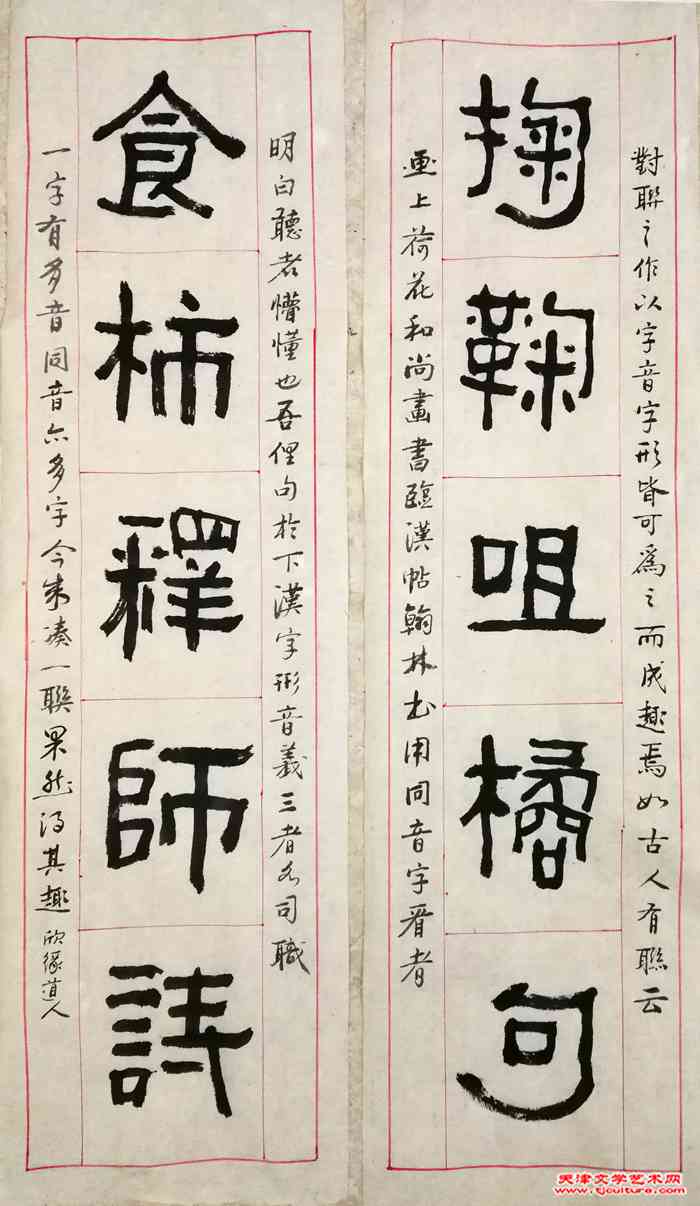 對聯之作以字音字形皆可為之而成趣焉如古人有聯云
掬鞠咀橘句
畫上荷花和尚畫書臨漢帖翰林書用同音字看者
明白聽者懵懂也吾俚句於下漢字形音義三者各司職
食柿釋師詩
一字有多音同音亦多字今來湊一聯果然得其趣 欣緣道人
天津文学艺术网
www.tjculture.com